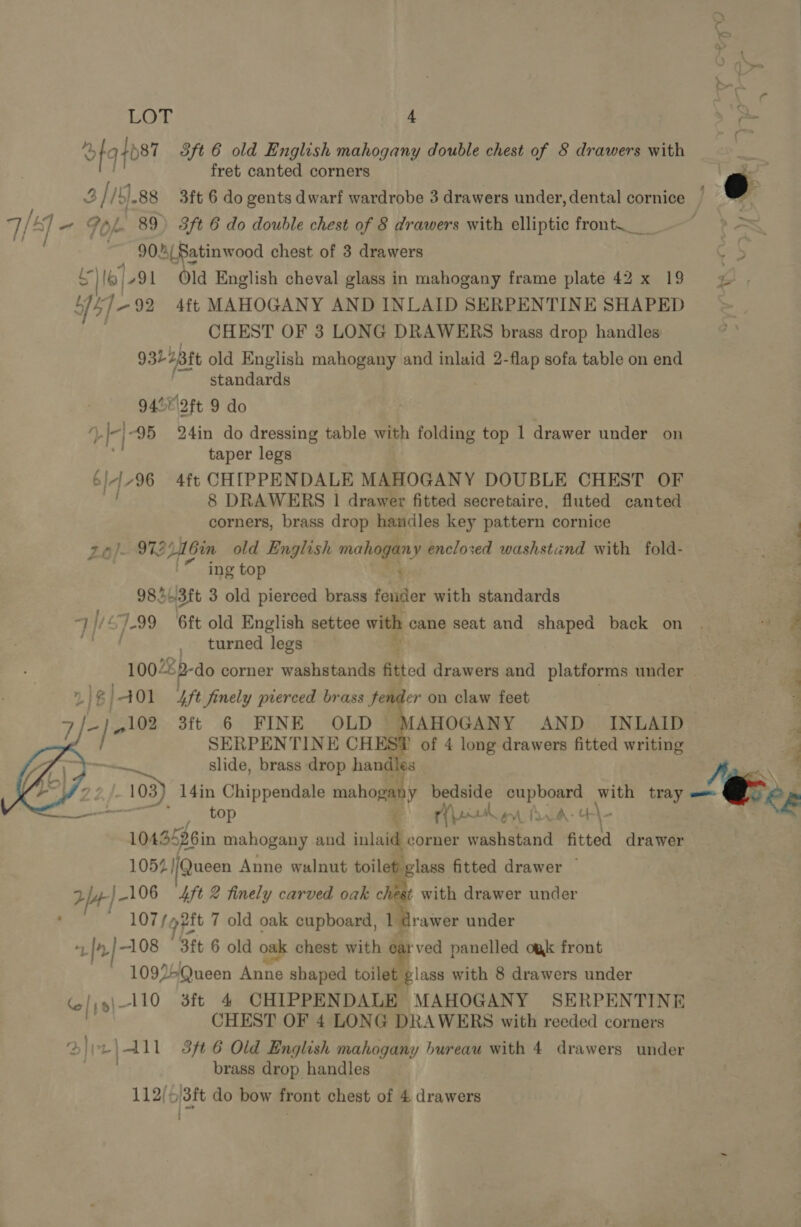 LOT 4
87 3ft 6 old English mahogany double chest of 8 drawers with
fret canted corners
88 3ft 6 do gents dwarf wardrobe 3 drawers under, dental cornice
89 3ft 6 do double chest of 8 drawers with elliptic front
90 Satinwood chest of 3 drawers
91 Old English cheval glass in mahogany frame plate 42 x 19
92 4ft MAHOGANY AND INLAID SERPENTINE SHAPED
CHEST OF 3 LONG DRAWERS brass drop handles
93 3ft old English mahogany and inlaid 2-flap sofa table on end
standards
94 2ft 9 do
95 24in do dressing table with folding top 1 drawer under on
taper legs
96 4ft CHIPPENDALE MAHOGANY DOUBLE CHEST OF
8 DRAWERS 1 drawer fitted secretaire, fluted canted
corners, brass drop handles key pattern cornice
97 16in old English mahogany enclosed washstand with fold-
ing top
98 3ft 3 old pierced brass fender with standards
99 6ft old English settee with cane seat and shaped back on
turned legs
100 2-do corner washstands fitted drawers and platforms under
101 4ft finely pierced brass fender on claw feet
102 3ft 6 FINE OLD MAHOGANY AND INLAID
SERPENTINE CHEST of 4 long drawers fitted writing
slide, brass drop handles
103) 14in Chippendale mahogany bedside cupboard with tray
top
104 26in mahogany and inlaid corner washstand fitted drawer
105 Queen Anne walnut toilet glass fitted drawer
106 4ft 2 finely carved oak chest with drawer under
107 2ft 7 old oak cupboard, 1 drawer under
108 3ft 6 old oak chest with carved panelled oak front
109 Queen Anne shaped toilet glass with 8 drawers under
110 3ft 4 CHIPPENDALE MAHOGANY SERPENTINE
CHEST OF 4 LONG DRAWERS with reeded corners
111 3ft 6 Old English mahogany bureau with 4 drawers under
brass drop handles
112 3ft do bow front chest of 4 drawers